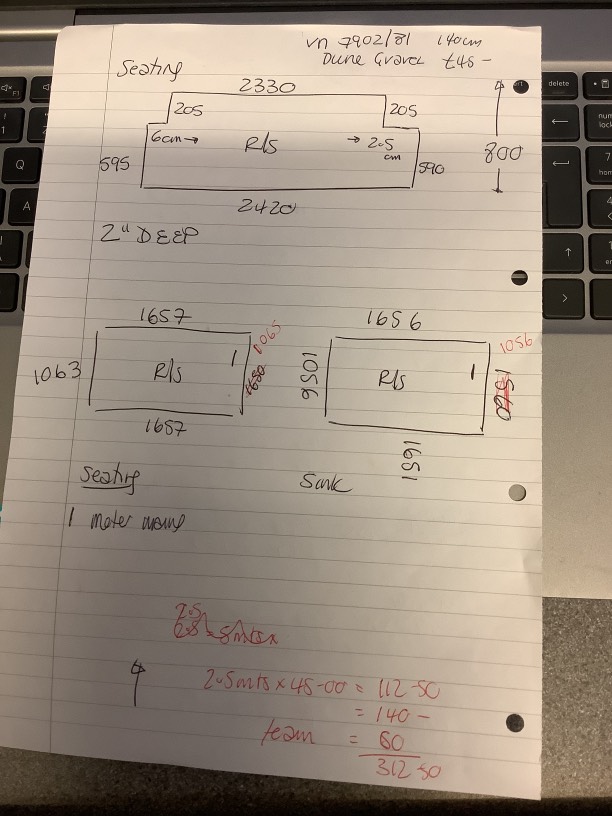 vn 7902/81 140cm
Dune Gravel £45 -
Seating
2330
205
205
6cm→
R/S
→ 2.5
cm
595
590
800
2420
2" DEEP
1657
1656
1065
1056
1063
R/S
1
1056
R/S
1
1657
1651
Seating
Sink
1 meter
2.5mts x 45-00 = 112-50
= 140 -
team = 60
312 50
delete
F1
num
lock
Q
A